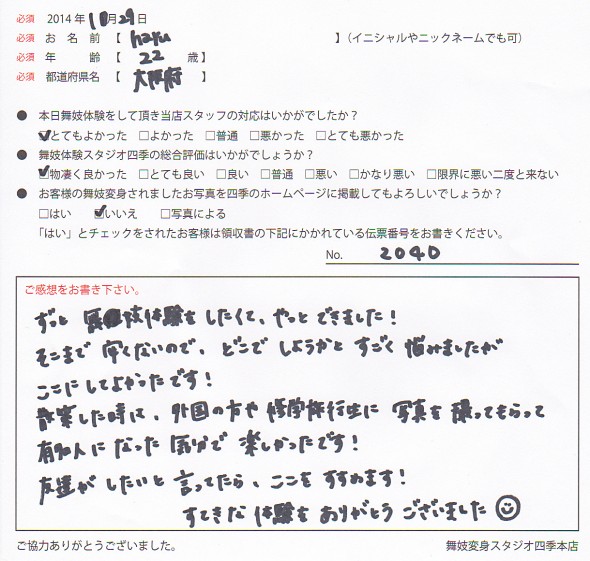 必須 2014年10月29日
必須 お名前【 haru 】(イニシャルやニックネームでも可)
必須 年齢【 22 歳】
必須 都道府県名【 大阪府 】
● 本日舞妓体験をして頂き当店スタッフの対応はいかがでしたか?
☑とてもよかった □よかった □普通 □悪かった □とても悪かった
● 舞妓体験スタジオ四季の総合評価はいかがでしょうか?
☑物凄く良かった □とても良い □良い □普通 □悪い □かなり悪い □限界に悪い二度と来ない
● お客様の舞妓変身されましたお写真を四季のホームページに掲載してもよろしいでしょうか?
□はい ☑いいえ □写真による
「はい」とチェックをされたお客様は領収書の下記にかかれている伝票番号をお書きください。
No. 2040
ご感想をお書き下さい。
ずっと 妓体験をしたくて、やっとできました!
そこまで安くないので、どこでしようかとすごく悩みましたが
ここにしてよかったです!
散策した時は、外国の方や修学旅行生に写真を撮ってもらって
有名人になった気分で楽しかったです!
友達がしたいと言ってたら、ここをすすめます!
すてきな体験をありがとうございました☺
ご協力ありがとうございました。 舞妓変身スタジオ四季本店